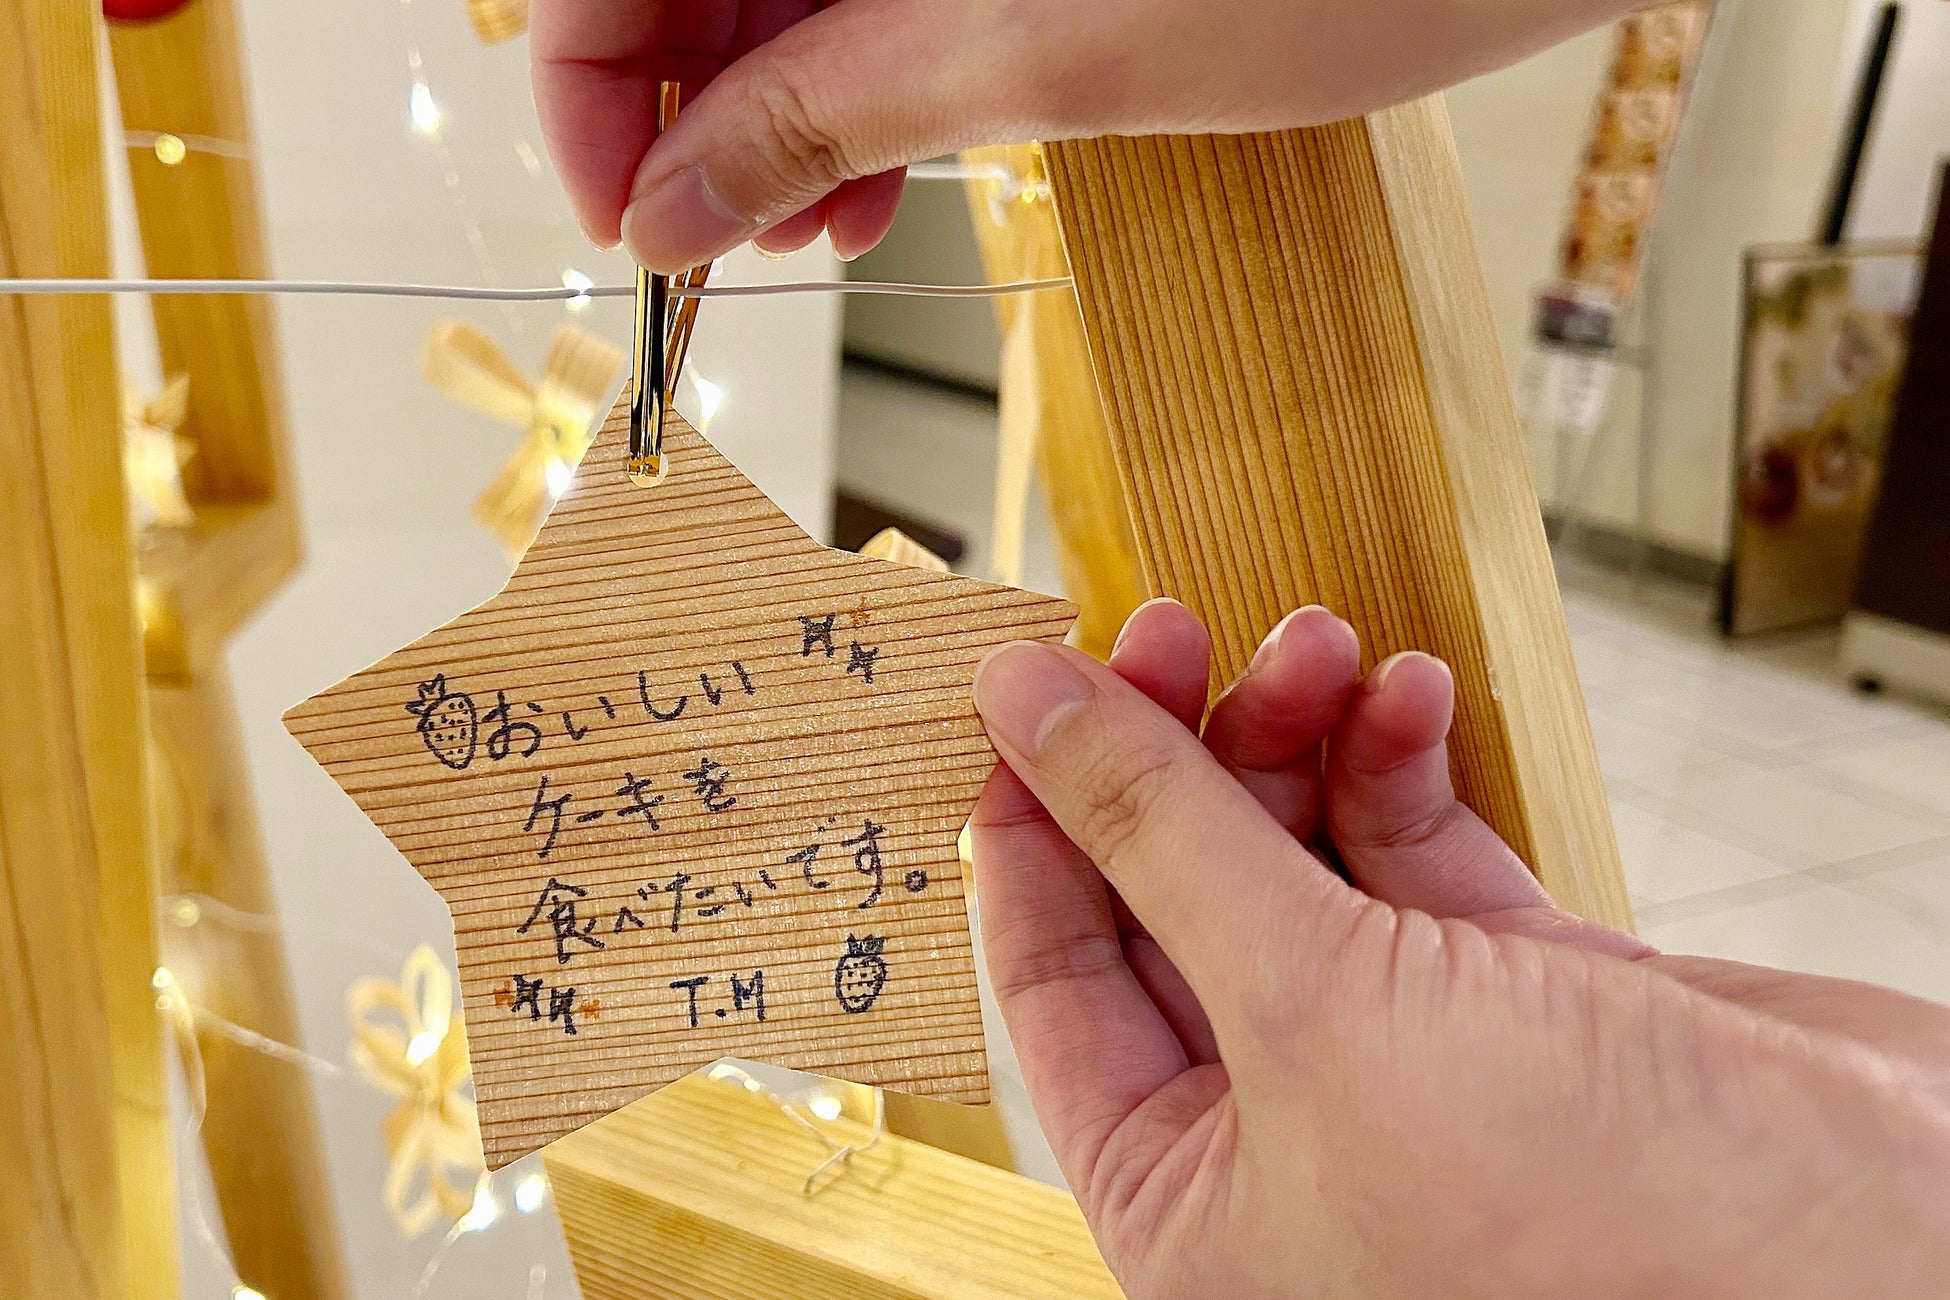 おいしい
ケーキを
食べたいです。
T.M